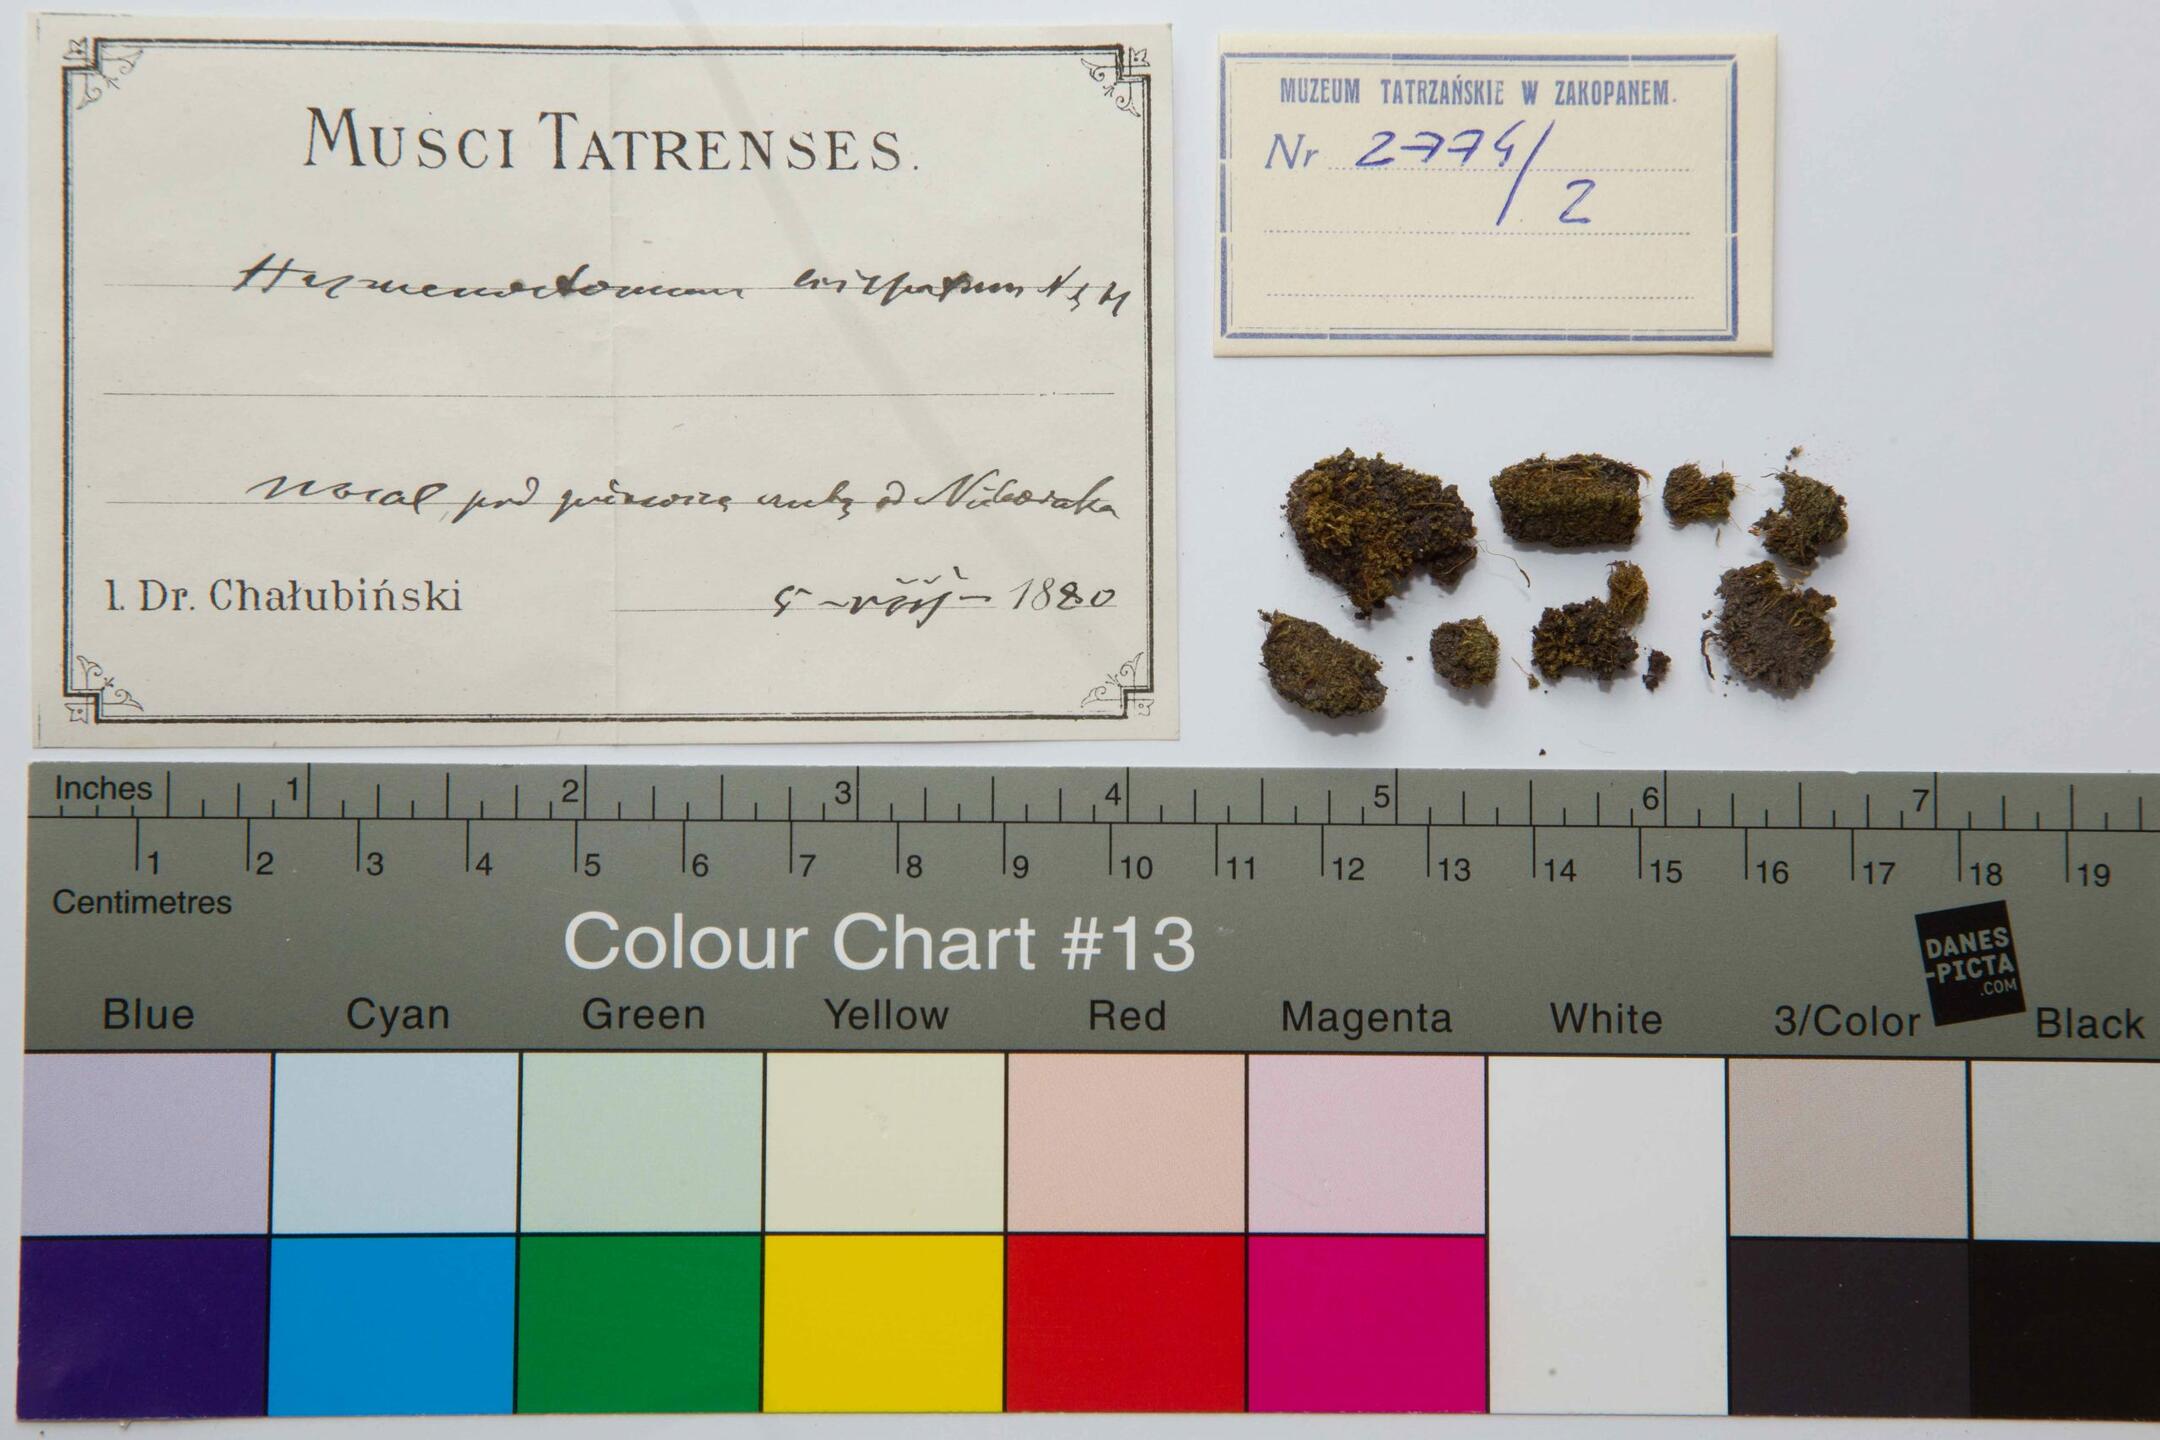 MUSCI TATRENSES.
Hymenostomum crispatum N & H
Nosal, pod pierwszą od
1. Dr. Chałubiński
5 - VIII - 1880
MUZEUM TATRZAŃSKIE W ZAKOPANEM.
Nr 2774/2
Inches 1 2 3 4 5 6 7
1 2 3 4 5 6 7 8 9 10 11 12 13 14 15 16 17 18 19
Centimetres
Colour Chart #13
DANES
-PICTA
.COM
Blue Cyan Green Yellow Red Magenta White 3/Color Black